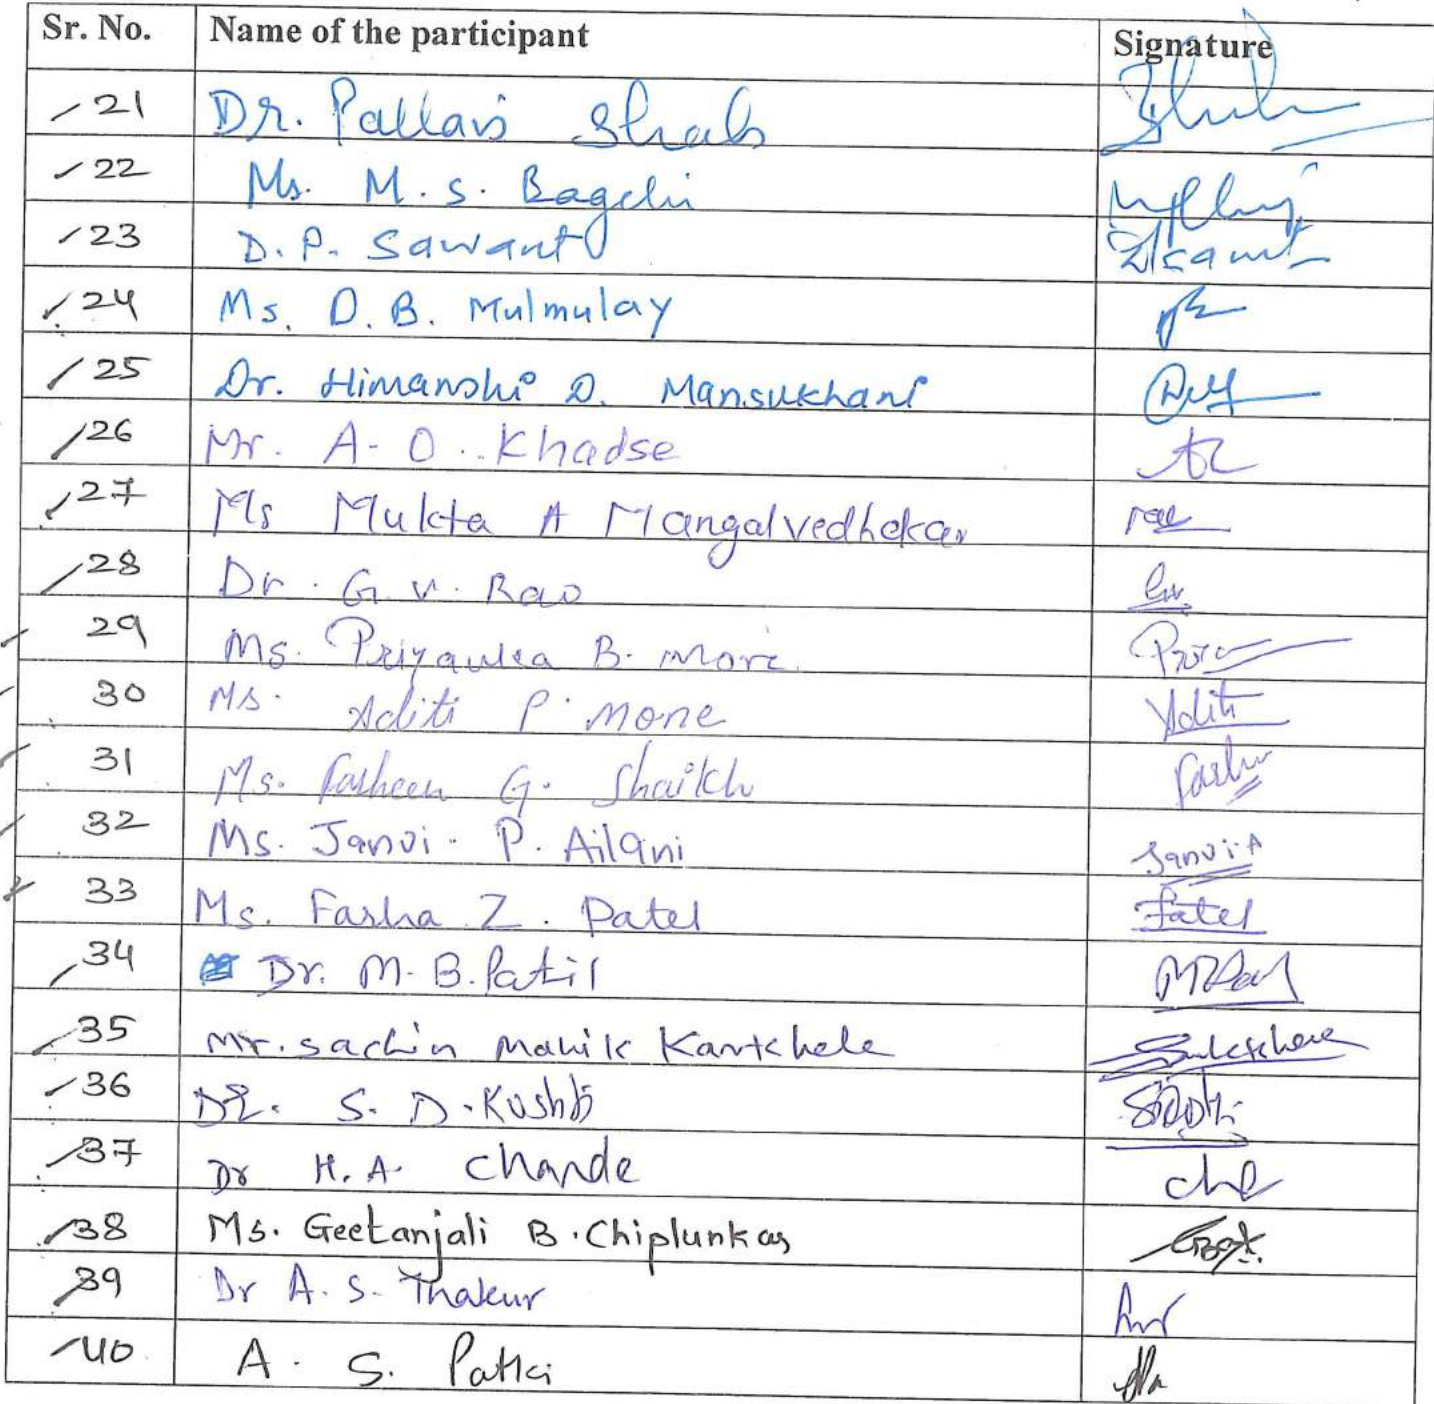 Sr. No. Name of the participant Signature
21 Dr. Pallavi Shah
22 Ms. M. S. Bagchi
23 D. P. Sawant
24 Ms. D. B. Mulmulay
25 Dr. Himanshi D. Mansukhani
26 Mr. A. O. Khadse
27 Ms Mukta A Mangalvedhekar
28 Dr. G. V. Rao
29 Ms. Priyanka B. More
30 Ms. Aditi P. Mone Aditi
31 Ms. Farheen G. Shaikh
32 Ms. Janvi. P. Ailani Janvi.A
33 Ms. Farha Z. Patel Patel
34 Dr. M. B. Patil
35 Mr. Sachin Manik Kantkhele
36 Dr. S. D. Kushti
37 Dr H. A. Chande
38 Ms. Geetanjali B. Chiplunkar
39 Dr A. S. Thakur
40 A. S. Patki